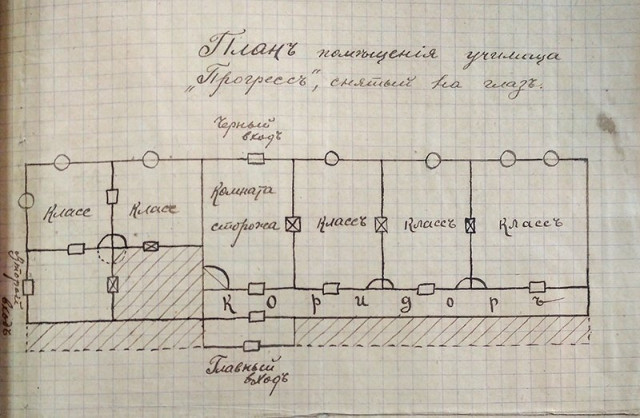 Планъ помѣщенія училища
„Прогрессъ", снятый на глазъ.
Черный
входъ
Классъ
Классъ
Комната
сторожа
Классъ
Классъ
Классъ
Второй
входъ
Коридоръ
Главный
входъ